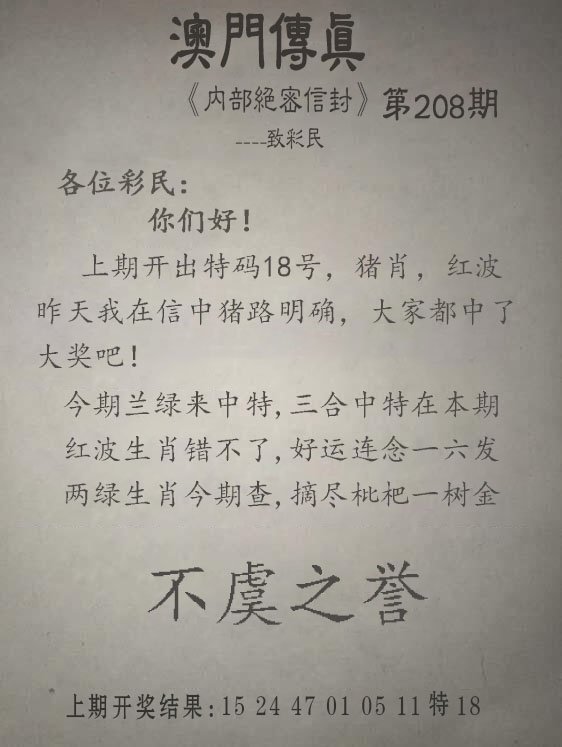 澳門傳眞
《内部絕密信封》第208期
----致彩民
各位彩民：
你们好！
上期开出特码18号，猪肖，红波
昨天我在信中猪路明确，大家都中了
大奖吧！
今期兰绿来中特,三合中特在本期
红波生肖错不了,好运连念一六发
两绿生肖今期查,摘尽枇杷一树金
不虞之誉
上期开奖结果:15 24 47 01 05 11 特 18